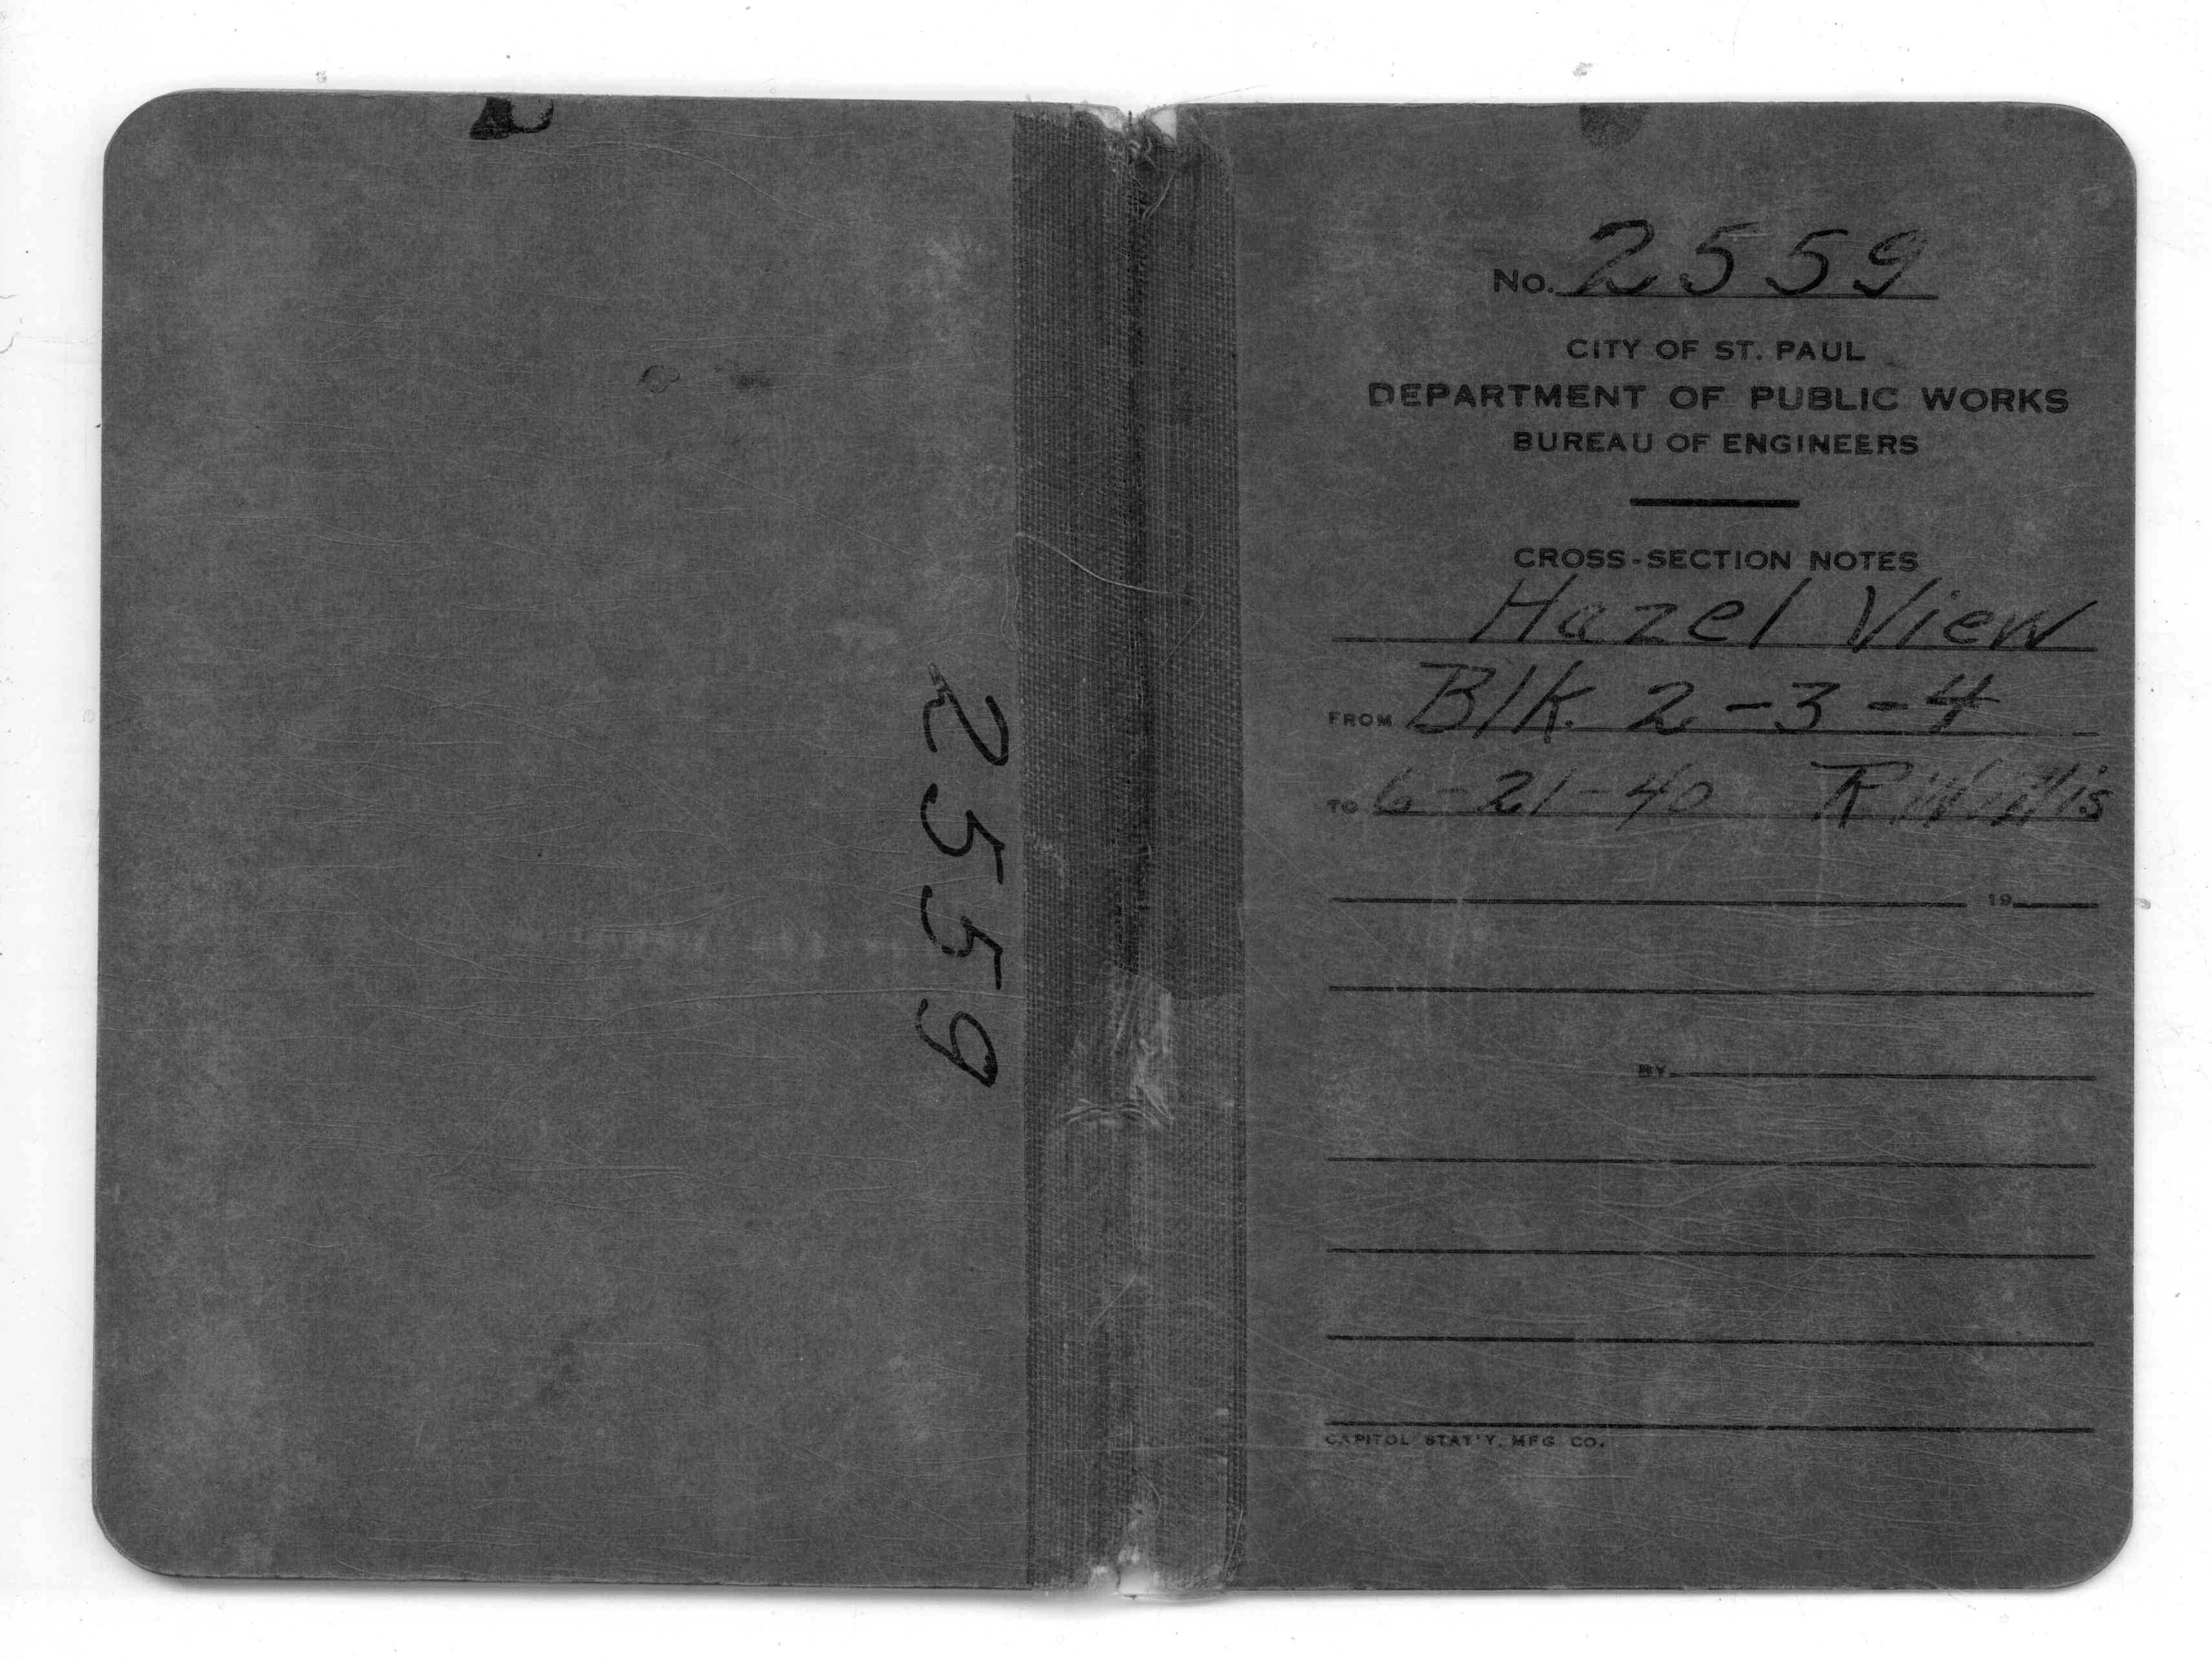 2559
No. 2559
CITY OF ST. PAUL
DEPARTMENT OF PUBLIC WORKS
BUREAU OF ENGINEERS
CROSS-SECTION NOTES
Hazel View
FROM Blk. 2-3-4
TO 6-21-40
19
BY
CAPITOL STAT'Y. MFG. CO.